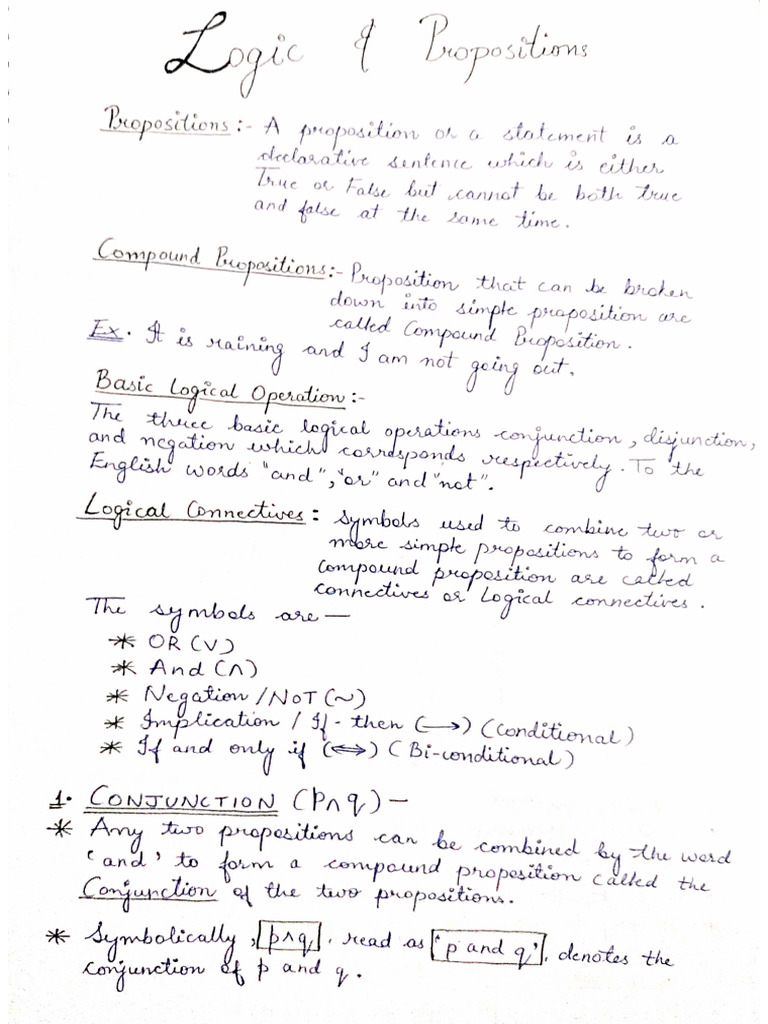 Logic & Propositions
Propositions :- A proposition or a statement is a
declarative sentence which is either
True or False but cannot be both true
and false at the same time.
Compound Propositions:- Proposition that can be broken
down into simple proposition are
called Compound Proposition.
Ex. It is raining and I am not going out.
Basic Logical Operation:-
The three basic logical operations conjunction, disjunction,
and negation which corresponds respectively. To the
English words "and", "or" and "not".
Logical Connectives: Symbols used to combine two or
more simple propositions to form a
compound proposition are called
connectives or Logical connectives.
The symbols are —
* OR (∨)
* And (∧)
* Negation / NOT (~)
* Implication / If - then (⟶) (Conditional)
* If and only if (⟺) (Bi-conditional)
1. CONJUNCTION (p∧q) —
* Any two propositions can be combined by the word
'and' to form a compound proposition called the
Conjunction of the two propositions.
* Symbolically, p∧q, read as 'p and q', denotes the
conjunction of p and q.